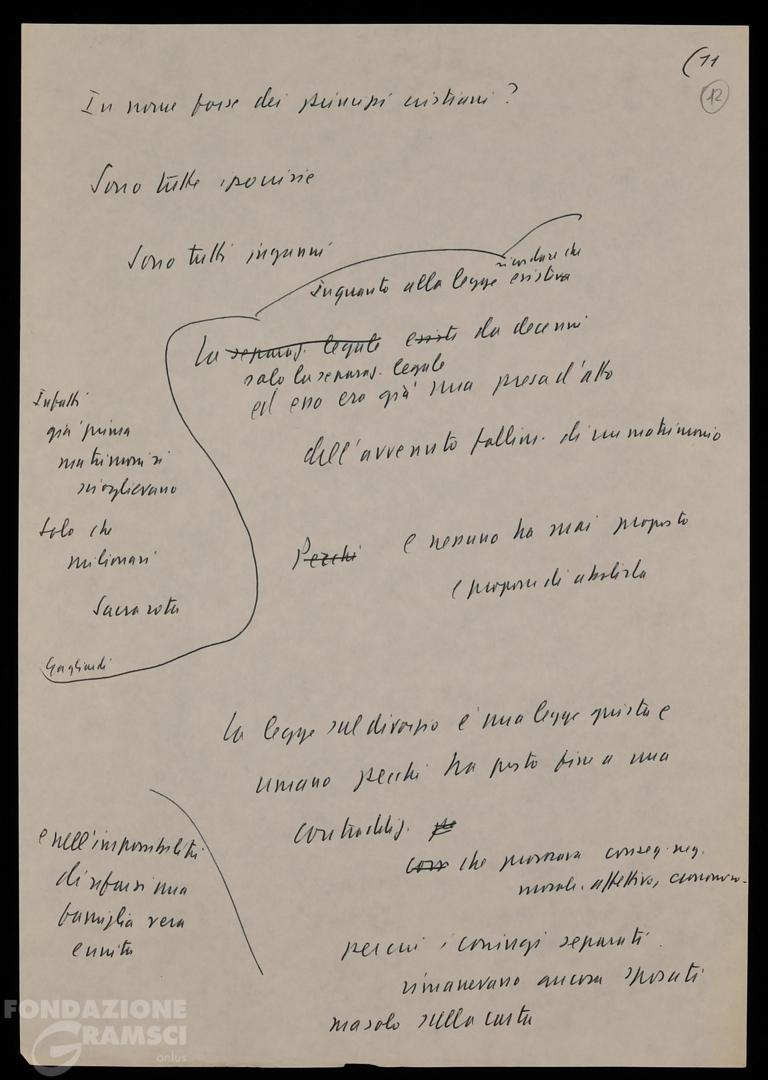 (11
12
In nome forse dei principi cristiani?
Sono tutte ipocrisie
Sono tutti inganni
ricordare che
Inquanto alla legge esistiva
La separaz. legale esiste da decenni
solo la separaz. legale
ed esso era già una presa d'atto
dell'avvenuto fallim. di un matrimonio
Infatti
già prima
matrimoni si
scioglievano
Solo che
milionari
Sacra rota
Gagliardi
Perchè e nessuno ha mai proposto
e propone di abolirla
La legge sul divorzio è una legge giusta e
umana perchè ha posto fine a una
contraddiz.
che provocava conseg. neg.
morali, affettive, economico-
e nell'impossibilità
di rifarsi una
famiglia vera
e unita
per cui i coniugi separati
rimanevano ancora sposati
ma solo sulla carta
FONDAZIONE
GRAMSCI
onlus